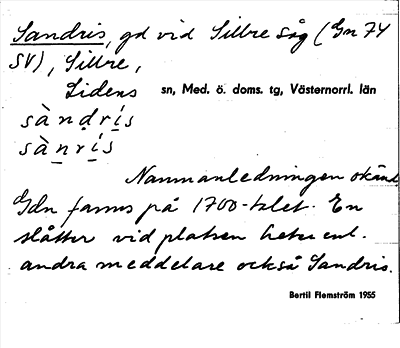 Sandris, gd vid Sillre såg (Gn 74
SV), Sillre,
Lidens sn, Med. ö. doms. tg, Västernorrl. län
sàndrís
sànrís
Namnanledningen okänd.
Gdn fanns på 1700-talet. En
slåtter vid platsen heter enl.
andra meddelare också Sandris.
Bertil Flemström 1955